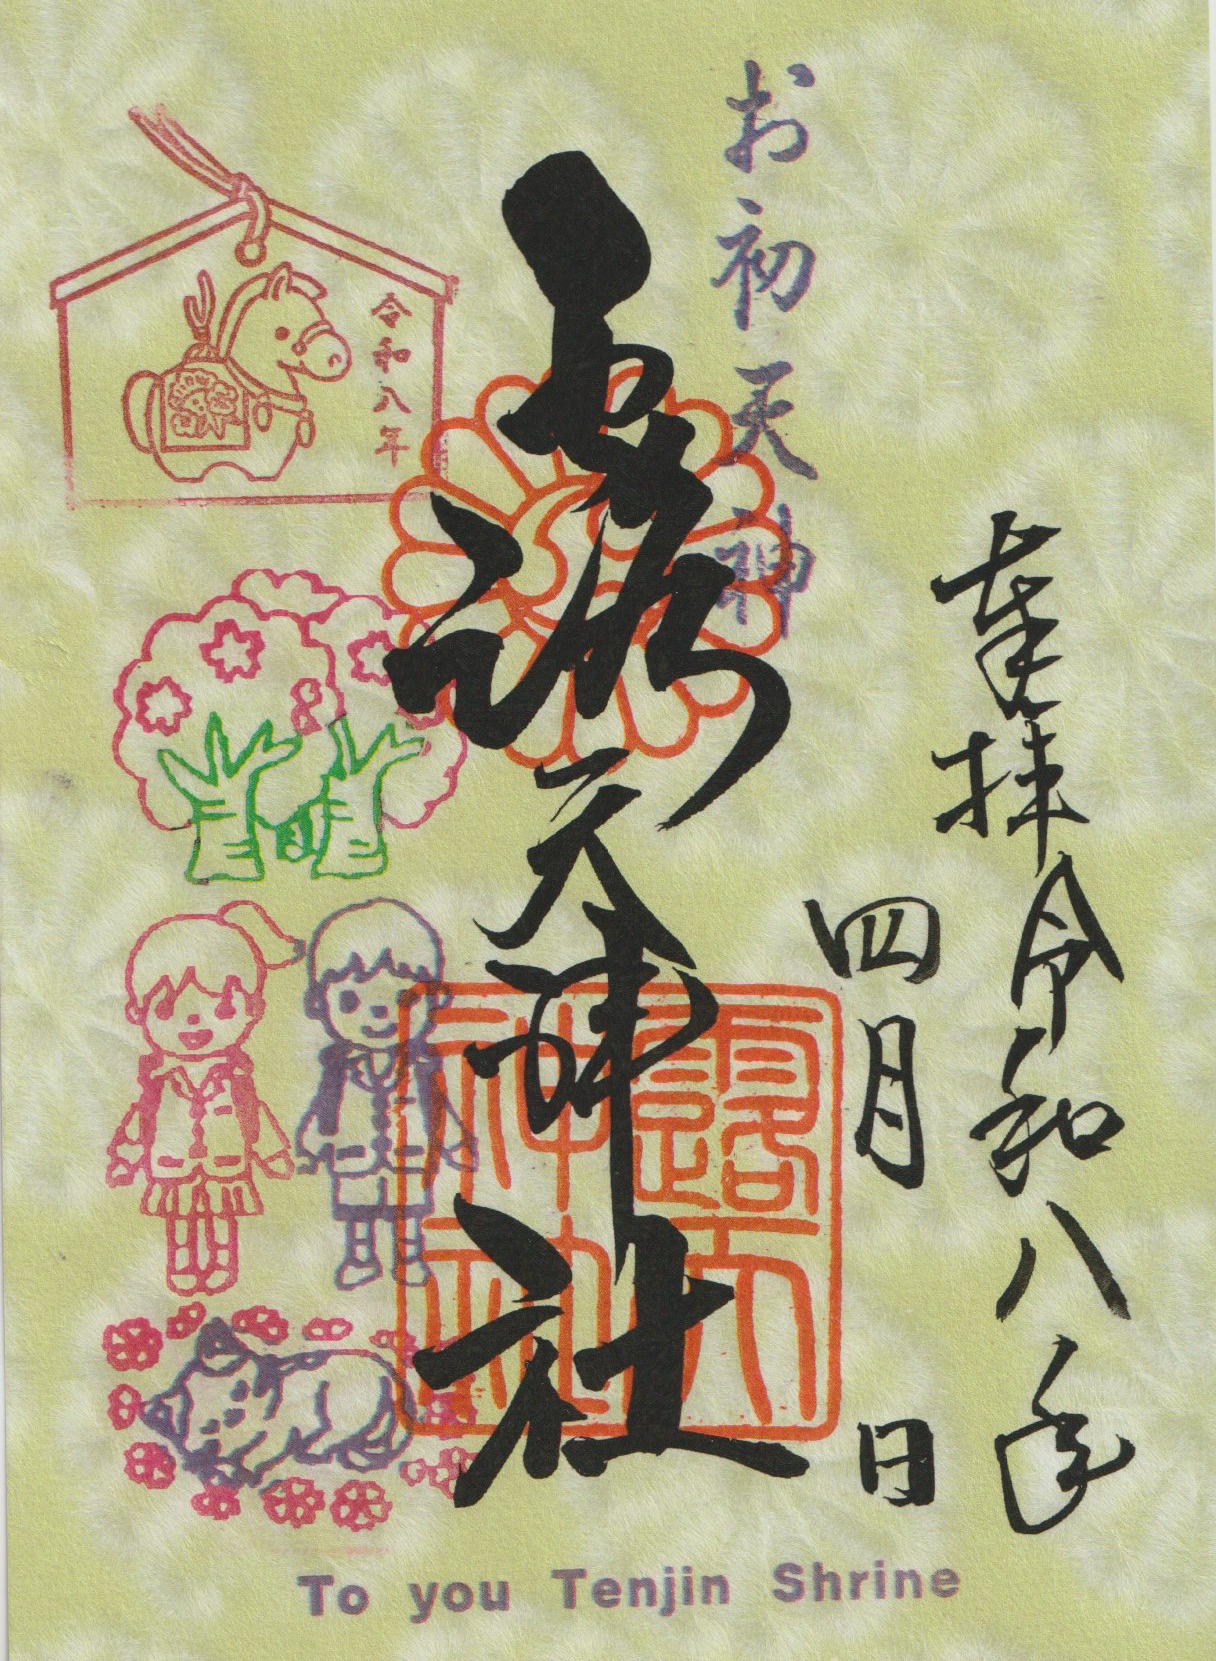 奉拝 令和八年
四月 日
お初天神
露天神社
露天
神社
令和八年
To you Tenjin Shrine